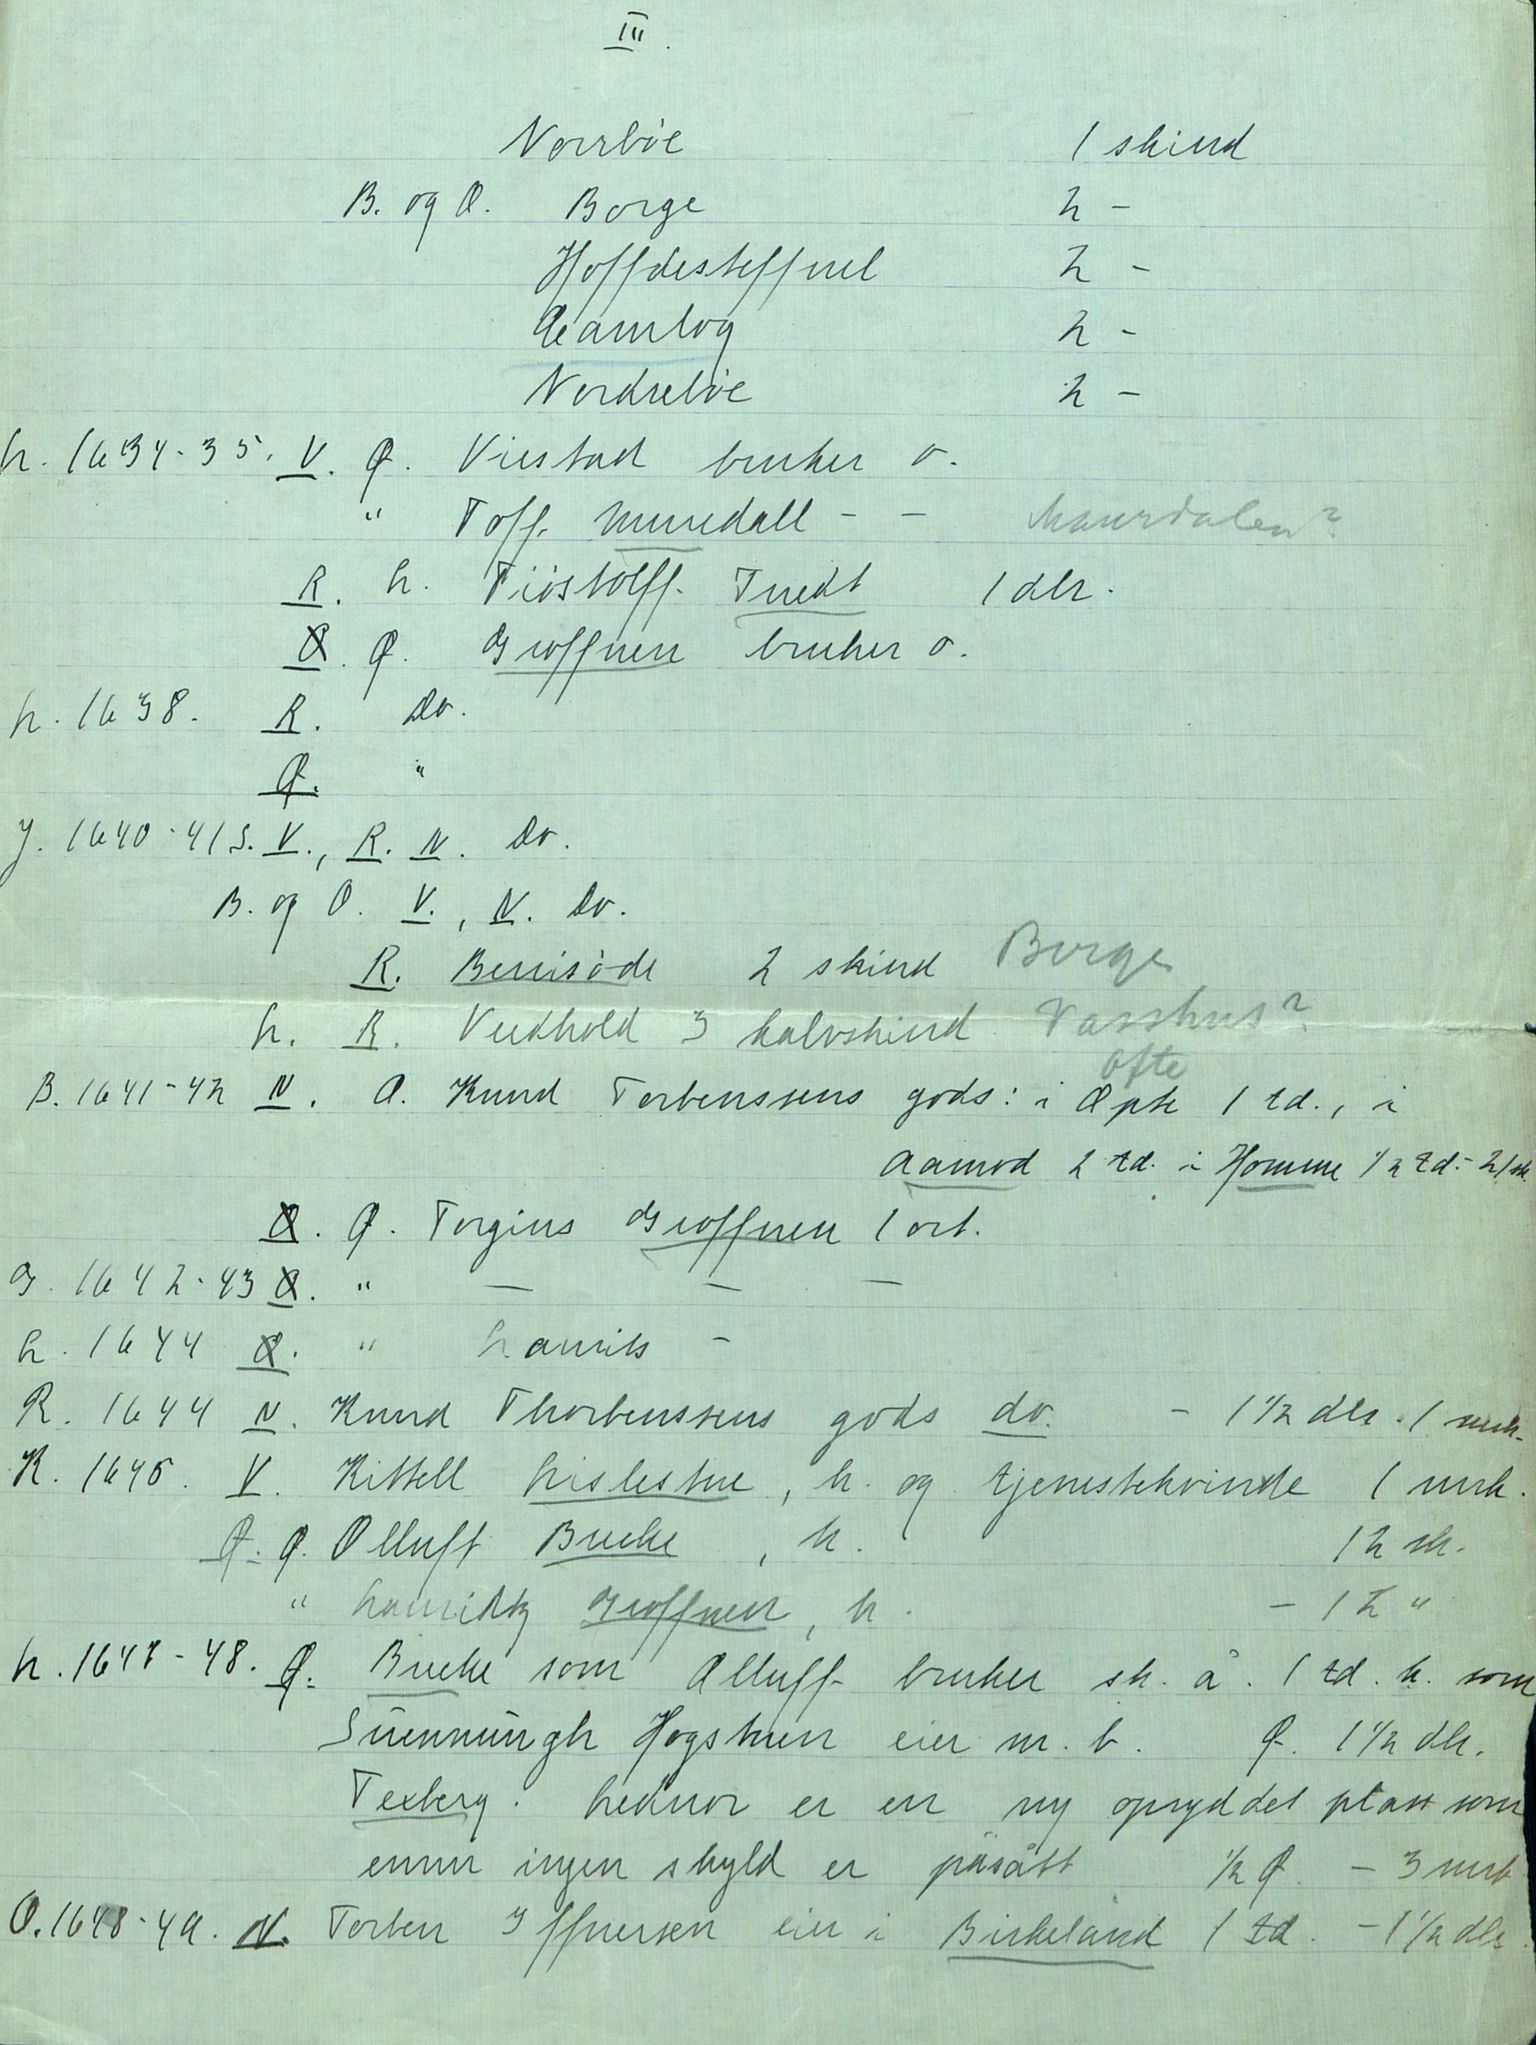 III.
Norrbøe 1 skind
B. og O. Borge 2 -
Hoffdesteffnel 2 -
Aamlog 2 -
Nordrebøe 2 -
h. 1634-35. V. Ø. Viestad bruker o.
" Toff. Muuedall - - Maurdalen?
R. h. Tiøstolff. Tuedt 1 dlr.
Ø. Groffnen bruker o.
h. 1638. R. Do.
Ø. "
J. 1640-41 S. V., R. N. Do.
B. og O. V., N. Do.
R. Berrisøde 2 skind Borge
h. R. Vedhold 3 kalvskind Vasshus?
Ofte
B. 1641-42 N. A. Knud Torbenssens gods: i Opte 1 td., i
Aamod 2 td. i Homme 1/2 td. - 21 sk.
Ø. Torgius Groffnen 1 ort.
G. 1642-43 Ø. " — — —
h. 1644 Ø. " Laurits -
R. 1644 N. Knud Thorbenssens gods do. - 1 1/2 dlr. 1 mrk.
K. 1645. V. Kittell Lislestue, h. og tjenestekvinde 1 mrk.
Ø. Ø. Olluff Brecke, h. 12 sk.
" Lauridtz Groffnen, h. - 12 "
h. 1647-48. Ø. Brecke som Olluff bruker sk. å. 1 td. k. som
Suennungh Hogstuen eier m. b. Ø. 1 1/2 dlr.
Texberg. Lednor er en ny opryddet plass som
ennu ingen skyld er påsått 1/2 Ø. - 3 mrk
O. 1648-49. N. Torben Iffuersen eier i Birkeland 1 td. - 1 1/2 dlr.